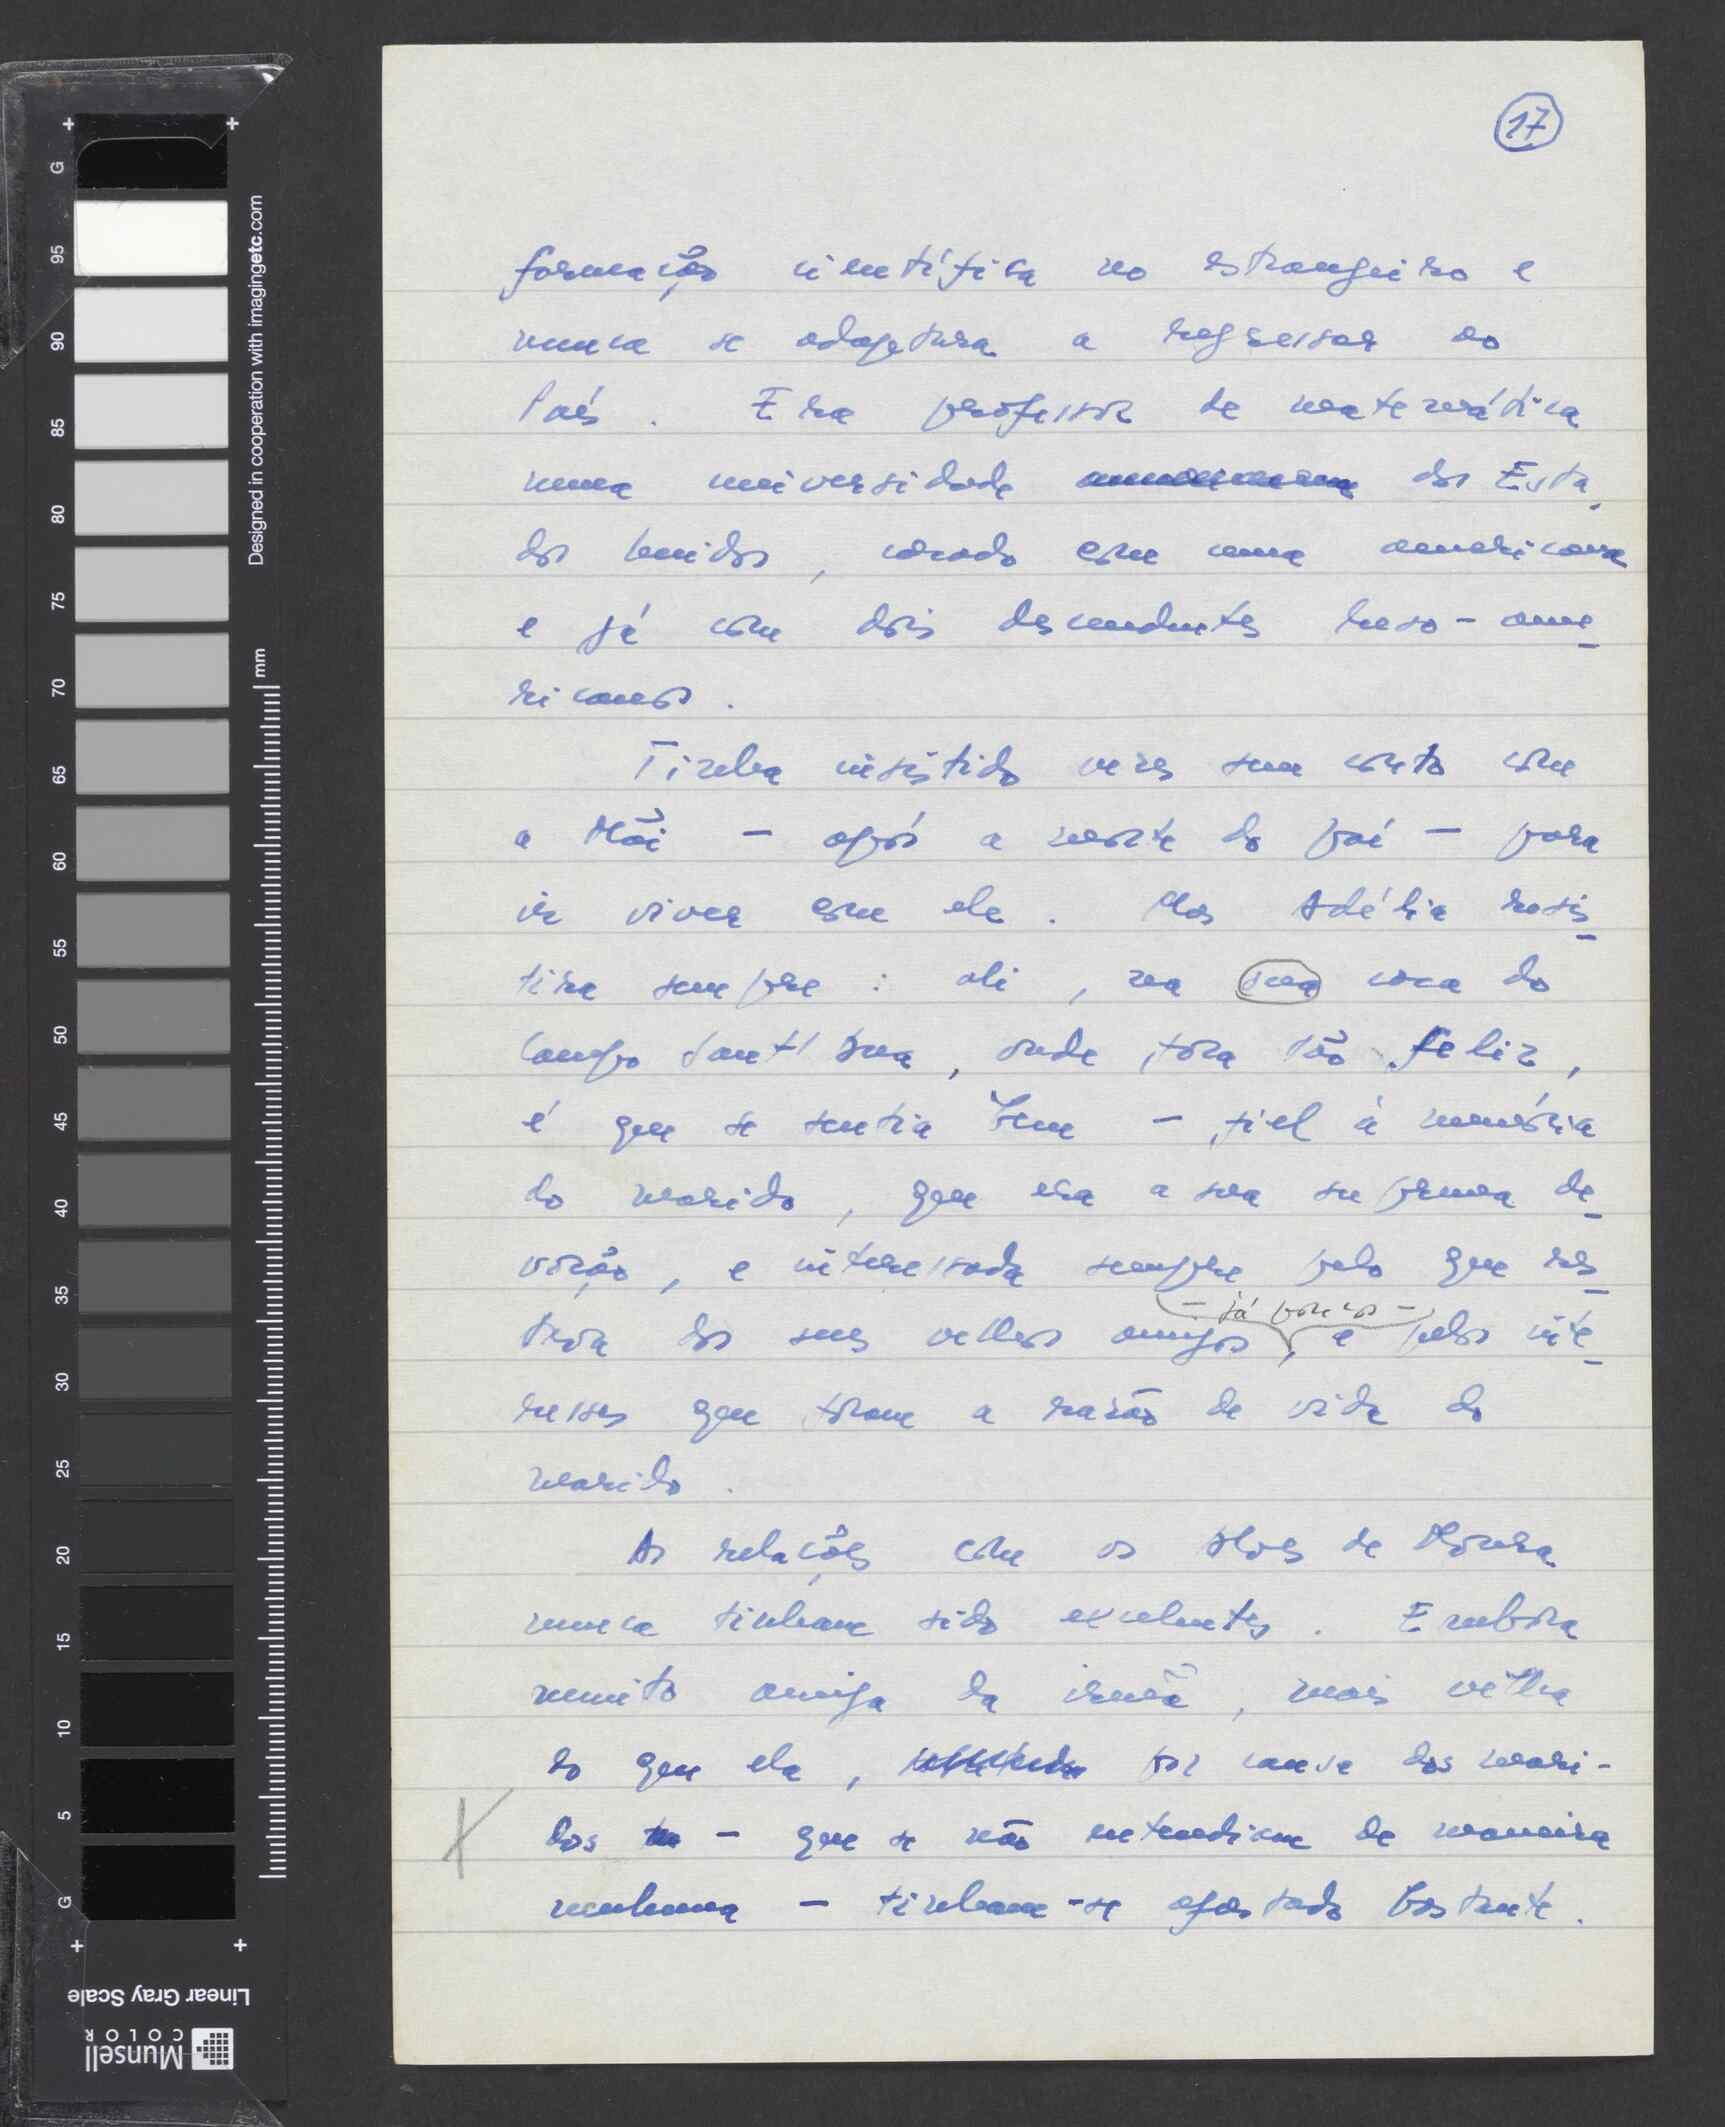 17
formação científica no estrangeiro e
nunca se adaptara a regressar ao
País. Era professor de matemática
numa universidade dos Esta
dos Unidos, casado com uma americana
e já com dois descendentes luso-ame
ricanos.
Tinha insistido vezes sem conto com
a Mãi — após a morte do pai — para
ir viver com ele. Mas Adélia resis
tira sempre: ali, na sua casa do
Campo Sant'Ana, onde fora tão feliz,
é que se sentia bem — fiel à memória
do marido, que era a sua suprema de
voção, e interessada sempre pelo que res
— já poucos —
tava dos seus velhos amigos, e pelos inte
resses que foram a razão de vida do
marido.
As relações com os Alves de Moura
nunca tinham sido excelentes. Embora
muito amiga da irmã, mais velha
do que ela, por causa dos mari-
dos — que se não entendiam de maneira
nenhuma — tinham-se afastado bastante.
G
95
90
85
80
75
70
65
60
55
50
45
40
35
30
25
20
15
10
5
G
Designed in cooperation with imagingetc.com
mm
Linear Gray Scale
Munsell
COLOR